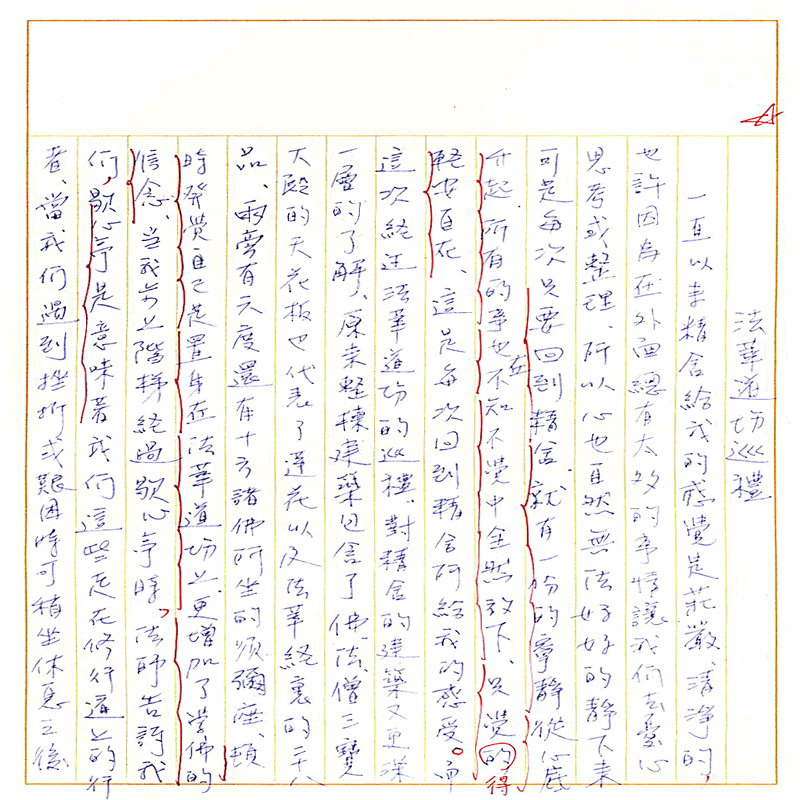 法華道場巡禮
一直以來精舍給我的感覺是莊嚴、清净的,
也許因為在外面總有太多的事情讓我們去憂心
思考或整理、所以心也自然無法好好的靜下來
可是每次只要回到精舍就有一份的寧靜從心底
升起、所有的事也在不知不覺中全然放下、只覺的得
輕安自在、這是每次回到精舍所給我的感受。而
這次繞圡法華道場的巡禮、對精舍的建築又更深
一層的了解、原來整棟建築包含了佛、法、僧三寶
大殿的天花板也代表了蓮花以及法華經裏的二十八
品、兩旁有天度還有十方諸佛所坐的須彌座、頓
時發覺自己是置身在法華道場上更增加了學佛的
信念、当我步上階梯經過歇心亭時,法師告訴我
們,歇心亭是意味著我們這些走在修行道上的行
者、當我們遇到挫折或艱困時可稍坐休息之後